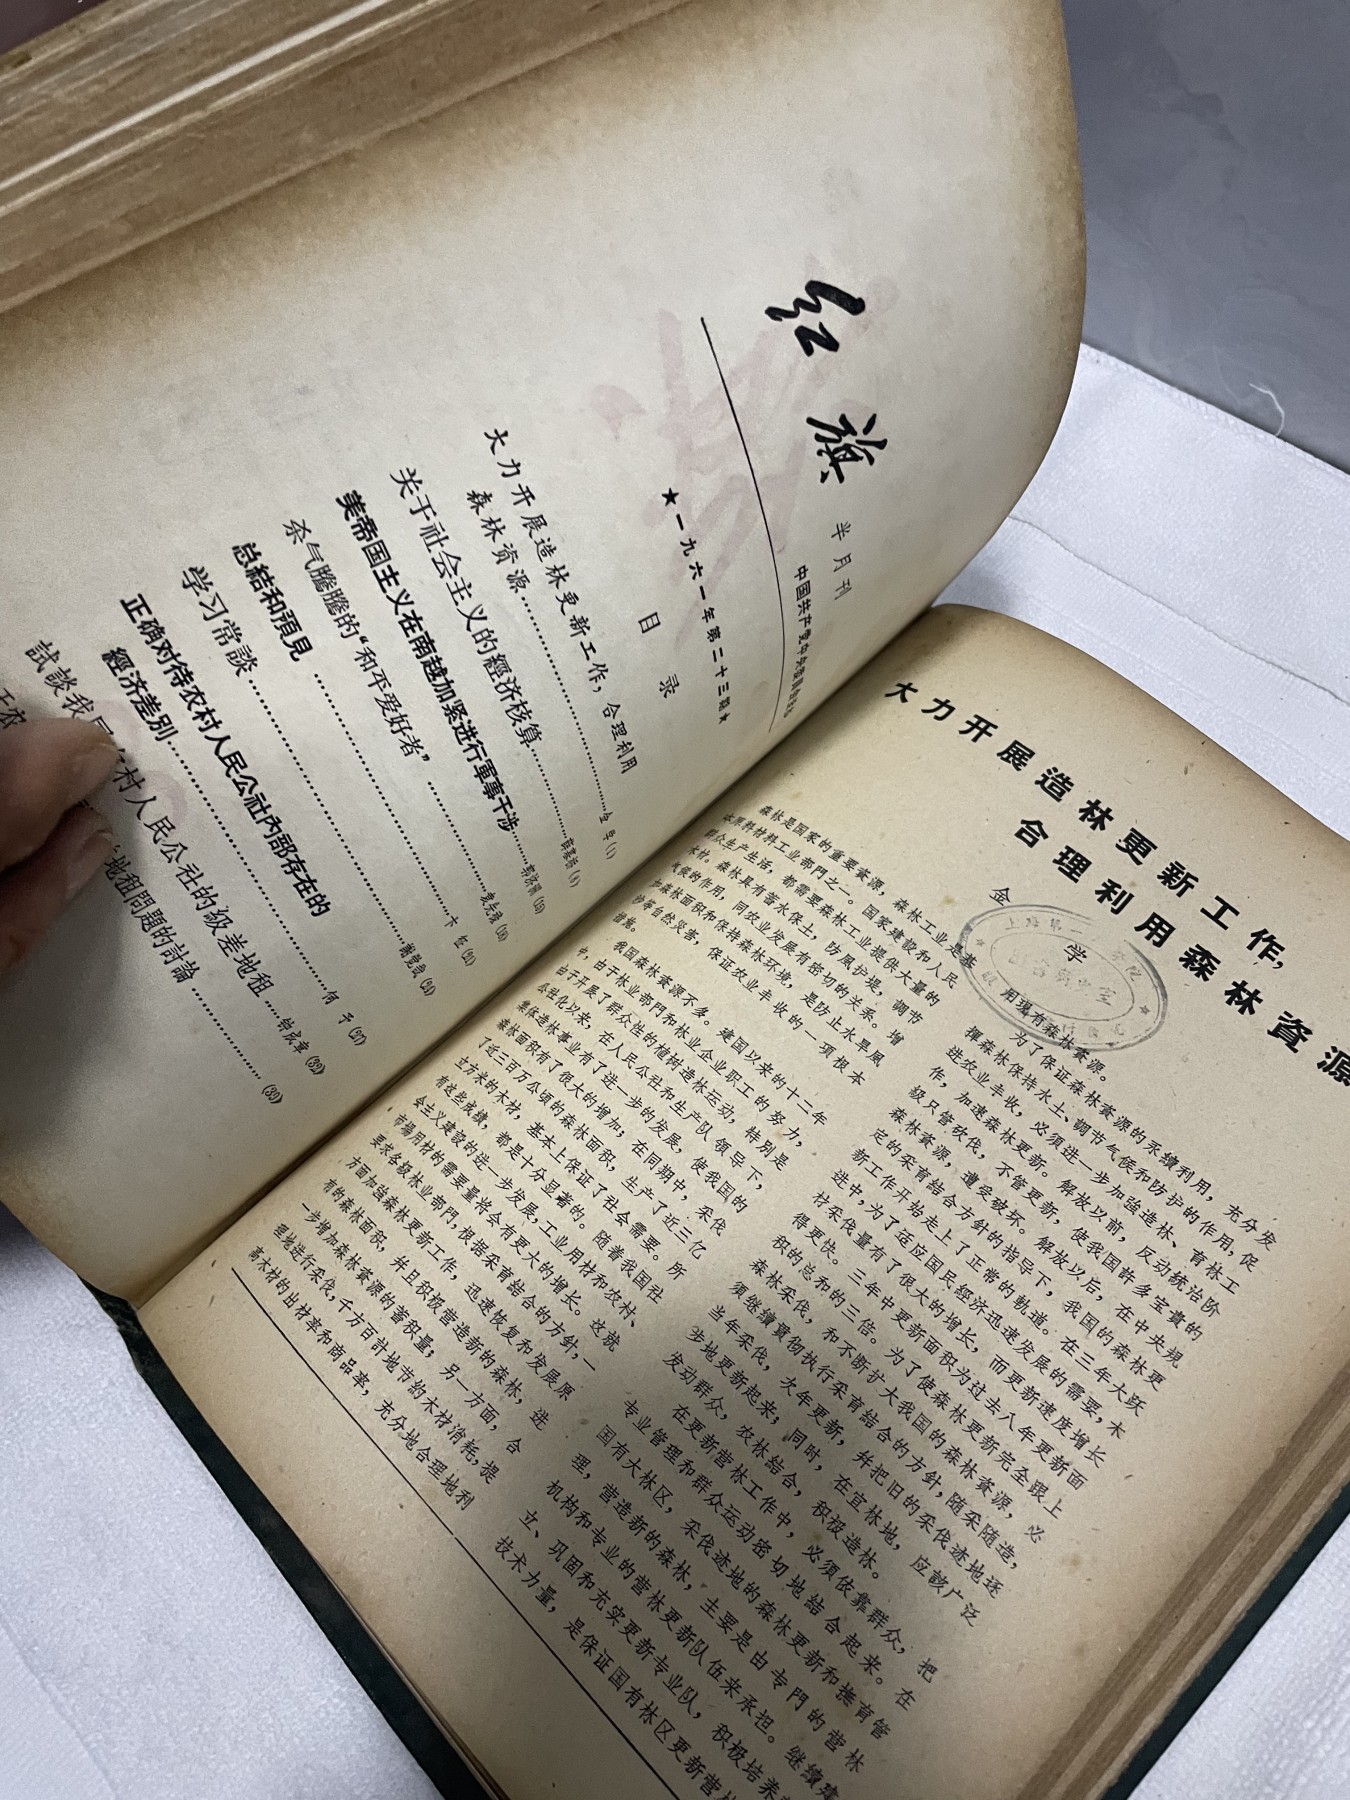 红旗 半月刊
中国共产党中央委員会主办
★一九六一年第二十三期★
目 录
大力开展造林更新工作，合理利用
森林資源…………金 学（1）
关于社会主义的經济核算…………（4）
美帝国主义在南越加紧进行軍事干涉…………（15）
杀气騰騰的“和平爱好者”…………（18）
总結和預見…………（21）
学习常談…………（24）
正确对待农村人民公社內部存在的
經济差別…………何 予（27）
試談我国
村人民公社的級差地租…………（32）
地租問題的討論…………（39）
大力开展造林更新工作，
合理利用森林資源
金 学
森林是国家的重要資源，森林工业是基
本原料材料工业部門之一。国家建設和人民
群众生产生活，都需要森林工业提供大量的
木材。森林具有蓄水保土，防風护堤，調节
气候的作用，同农业发展有密切的关系。增
加森林面积和保持森林环境，是防止水旱風
沙等自然灾害，保证农业丰收的一項根本
措施。
我国森林資源不多。建国以来的十二年
中，由于林业部門和林业企业职工的努力，
由于开展了群众性的植树造林运动，特別是
公社化以来，在人民公社和生产队領导下，
集体造林事业有了进一步的发展，使我国的
森林面积有了很大的增加；在同期中，采伐
了近三百万公頃的森林面积，生产了近三亿
立方米的木材，基本上保证了社会需要。所
有这些成績，都是十分显著的。随着我国社
会主义建設的进一步发展，工业用材和农村、
市場用材的需要量将会有更大的增长。这就
要求各級林业部門，根据采育結合的方針，一
方面加強森林更新工作，迅速恢复和发展原
有的森林面积，并且积极营造新的森林，进
一步增加森林資源的蓄积量；另一方面，合
理地进行采伐，千方百計地节約木材消耗，提
高木材的出材率和商品率，充分地合理地利
用現有森林資源。
为了保证森林資源的永續利用，充分发
揮森林保持水土、調节气候和防护的作用，促
进农业丰收，必須进一步加強造林、育林工
作，加速森林更新。解放以前，反动統治阶
級只管砍伐，不管更新，使我国許多宝貴的
森林資源，遭受破坏。解放以后，在中央規
定的采育結合方針的指导下，我国的森林更
新工作开始走上了正常的軌道。在三年大跃
进中，为了适应国民經济迅速发展的需要，木
材采伐量有了很大的增长，而更新速度增长
得更快。三年中更新面积为过去八年更新面
积的总和的三倍。为了使森林更新完全跟上
森林采伐，和不断扩大我国的森林資源，必
須继續貫彻执行采育結合的方針，随采随造，
当年采伐，次年更新，并把旧的采伐迹地逐
步地更新起来；同时，在宜林地，应該广泛
发动群众，农林結合，积极造林。
在更新营林工作中，必須依靠群众，把
专业管理和群众运动密切地結合起来。在
国有大林区，采伐迹地的森林更新和撫育管
理，营造新的森林，主要是由专門的营林
机构和专业的营林更新队伍来承担。継續建
立、巩固和充实更新专业队，积极培养
技术力量，是保证国有林区更新营